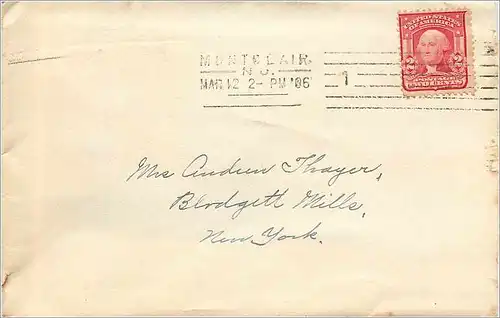 MONTCLAIR,
N.J.
MAR 12 2- PM '06
1
UNITED STATES
OF AMERICA
2 2
POSTAGE
TWO CENTS
Mrs Andrew Thayer,
Blodgett Mills,
New York.